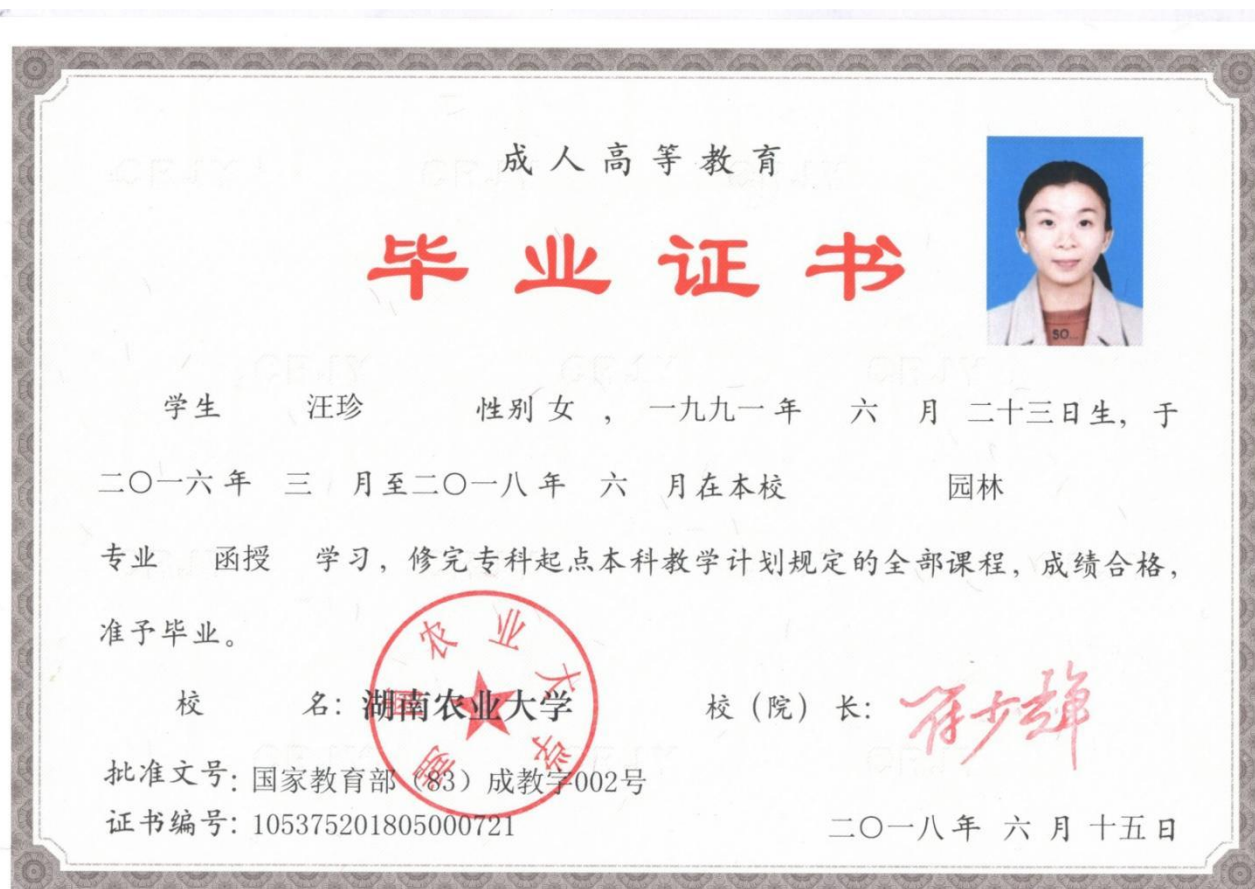 成人高等教育
毕业证书
SO...
学生 汪珍 性别 女 , 一九九一 年 六 月 二十三日生, 于
二〇一六 年 三 月至二〇一八 年 六 月在本校 园林
专业 函授 学习, 修完专科起点本科教学计划规定的全部课程, 成绩合格,
准予毕业。
校 名: 湖南农业大学 校 (院) 长:
湖南农业大学
批准文号: 国家教育部 (83) 成教字002号
证书编号: 105375201805000721
二〇一八 年 六 月 十五 日